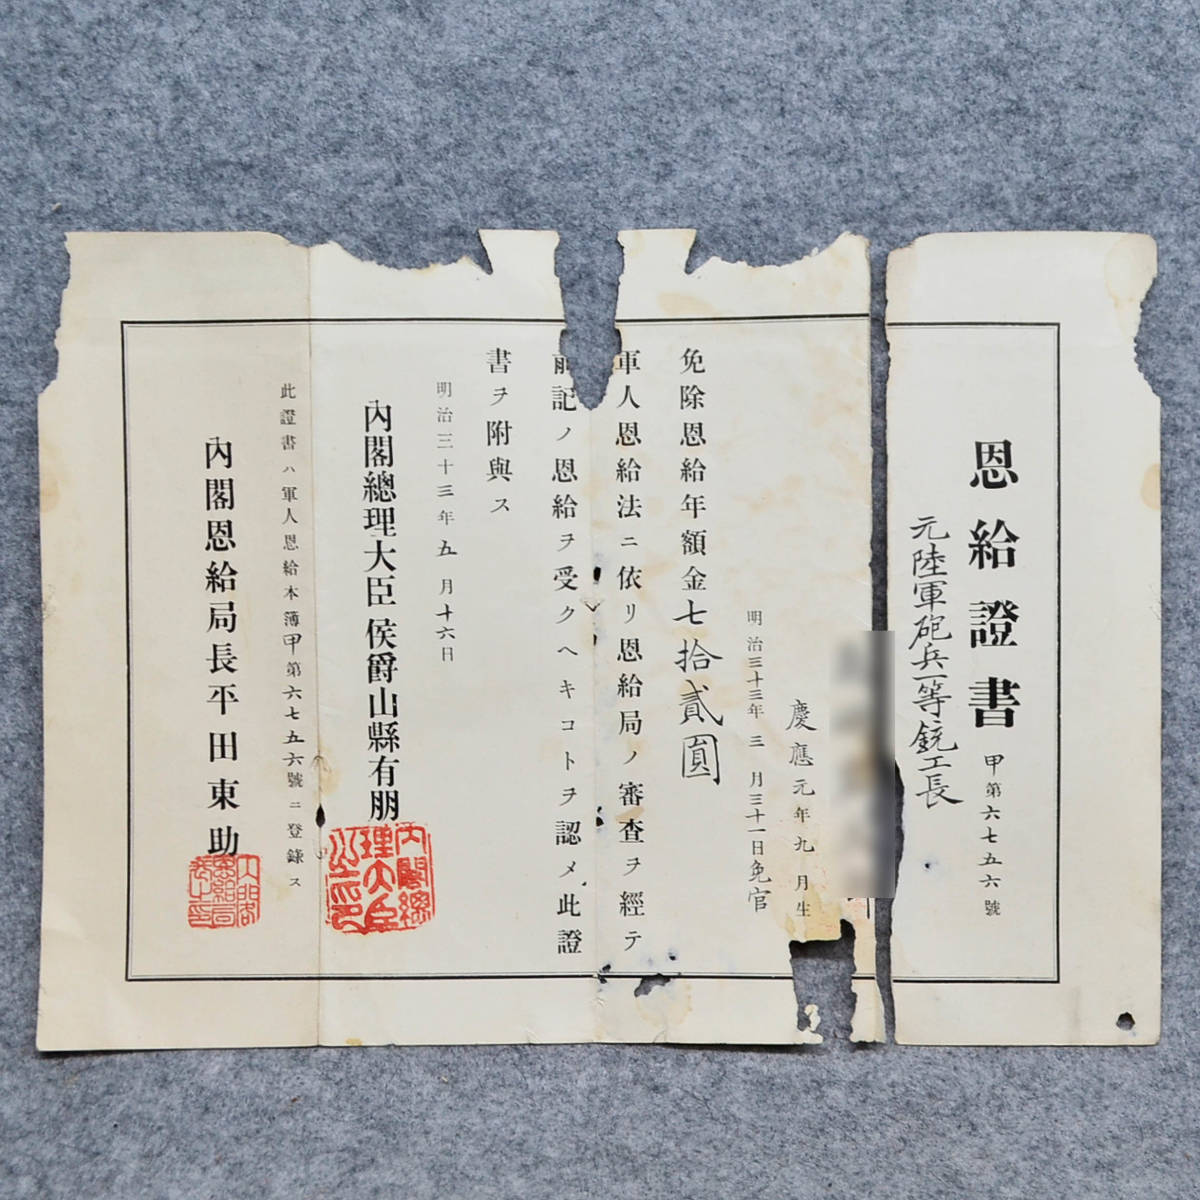 恩給證書
甲第六七五六號
元陸軍砲兵一等銃工長
慶應元年九月生
明治三十三年三月三十一日免官
免除恩給年額金七拾貳圓
軍人恩給法ニ依リ恩給局ノ審査ヲ經テ
前記ノ恩給ヲ受クヘキコトヲ認メ此證
書ヲ附與ス
明治三十三年五月十六日
內閣總理大臣侯爵山縣有朋
內閣總理大臣之印
此證書ハ軍人恩給本簿甲第六七五六號ニ登錄ス
內閣恩給局長平田東助
內閣恩給局長之印